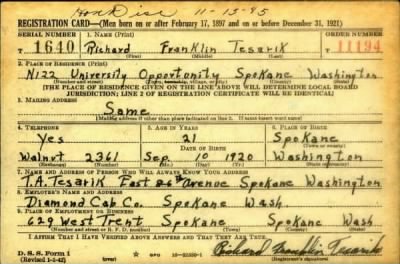 Hon Disc 11-15-45
REGISTRATION CARD—(Men born on or after February 17, 1897 and on or before December 31, 1921)
SERIAL NUMBER 1. NAME (Print) ORDER NUMBER
T 1640 Richard Franklin Tesarik 11194
(First) (Middle) (Last)
2. PLACE OF RESIDENCE (Print)
N122 University Opportunity Spokane Washington
(Number and street) (Town, township, village, or city) (County) (State)
[THE PLACE OF RESIDENCE GIVEN ON THE LINE ABOVE WILL DETERMINE LOCAL BOARD
JURISDICTION; LINE 2 OF REGISTRATION CERTIFICATE WILL BE IDENTICAL]
3. MAILING ADDRESS
Same
[Mailing address if other than place indicated on line 2. If same insert word same]
4. TELEPHONE 5. AGE IN YEARS 6. PLACE OF BIRTH
Yes 21 Spokane
DATE OF BIRTH (Town or county)
Walnut 2361 Sep. 10 1920 Washington
(Exchange) (Number) (Mo.) (Day) (Yr.) (State or country)
7. NAME AND ADDRESS OF PERSON WHO WILL ALWAYS KNOW YOUR ADDRESS
T.A. Tesarik East Avenue Spokane Washington
8. EMPLOYER'S NAME AND ADDRESS
Diamond Cab Co. Spokane Wash.
9. PLACE OF EMPLOYMENT OR BUSINESS
629 West Trent Spokane Spokane Wash
(Number and street or R. F. D. number) (Town) (County) (State)
I AFFIRM THAT I HAVE VERIFIED ABOVE ANSWERS AND THAT THEY ARE TRUE.
D. S. S. Form 1
(Revised 1-1-42) (over) Richard Franklin Tesarik